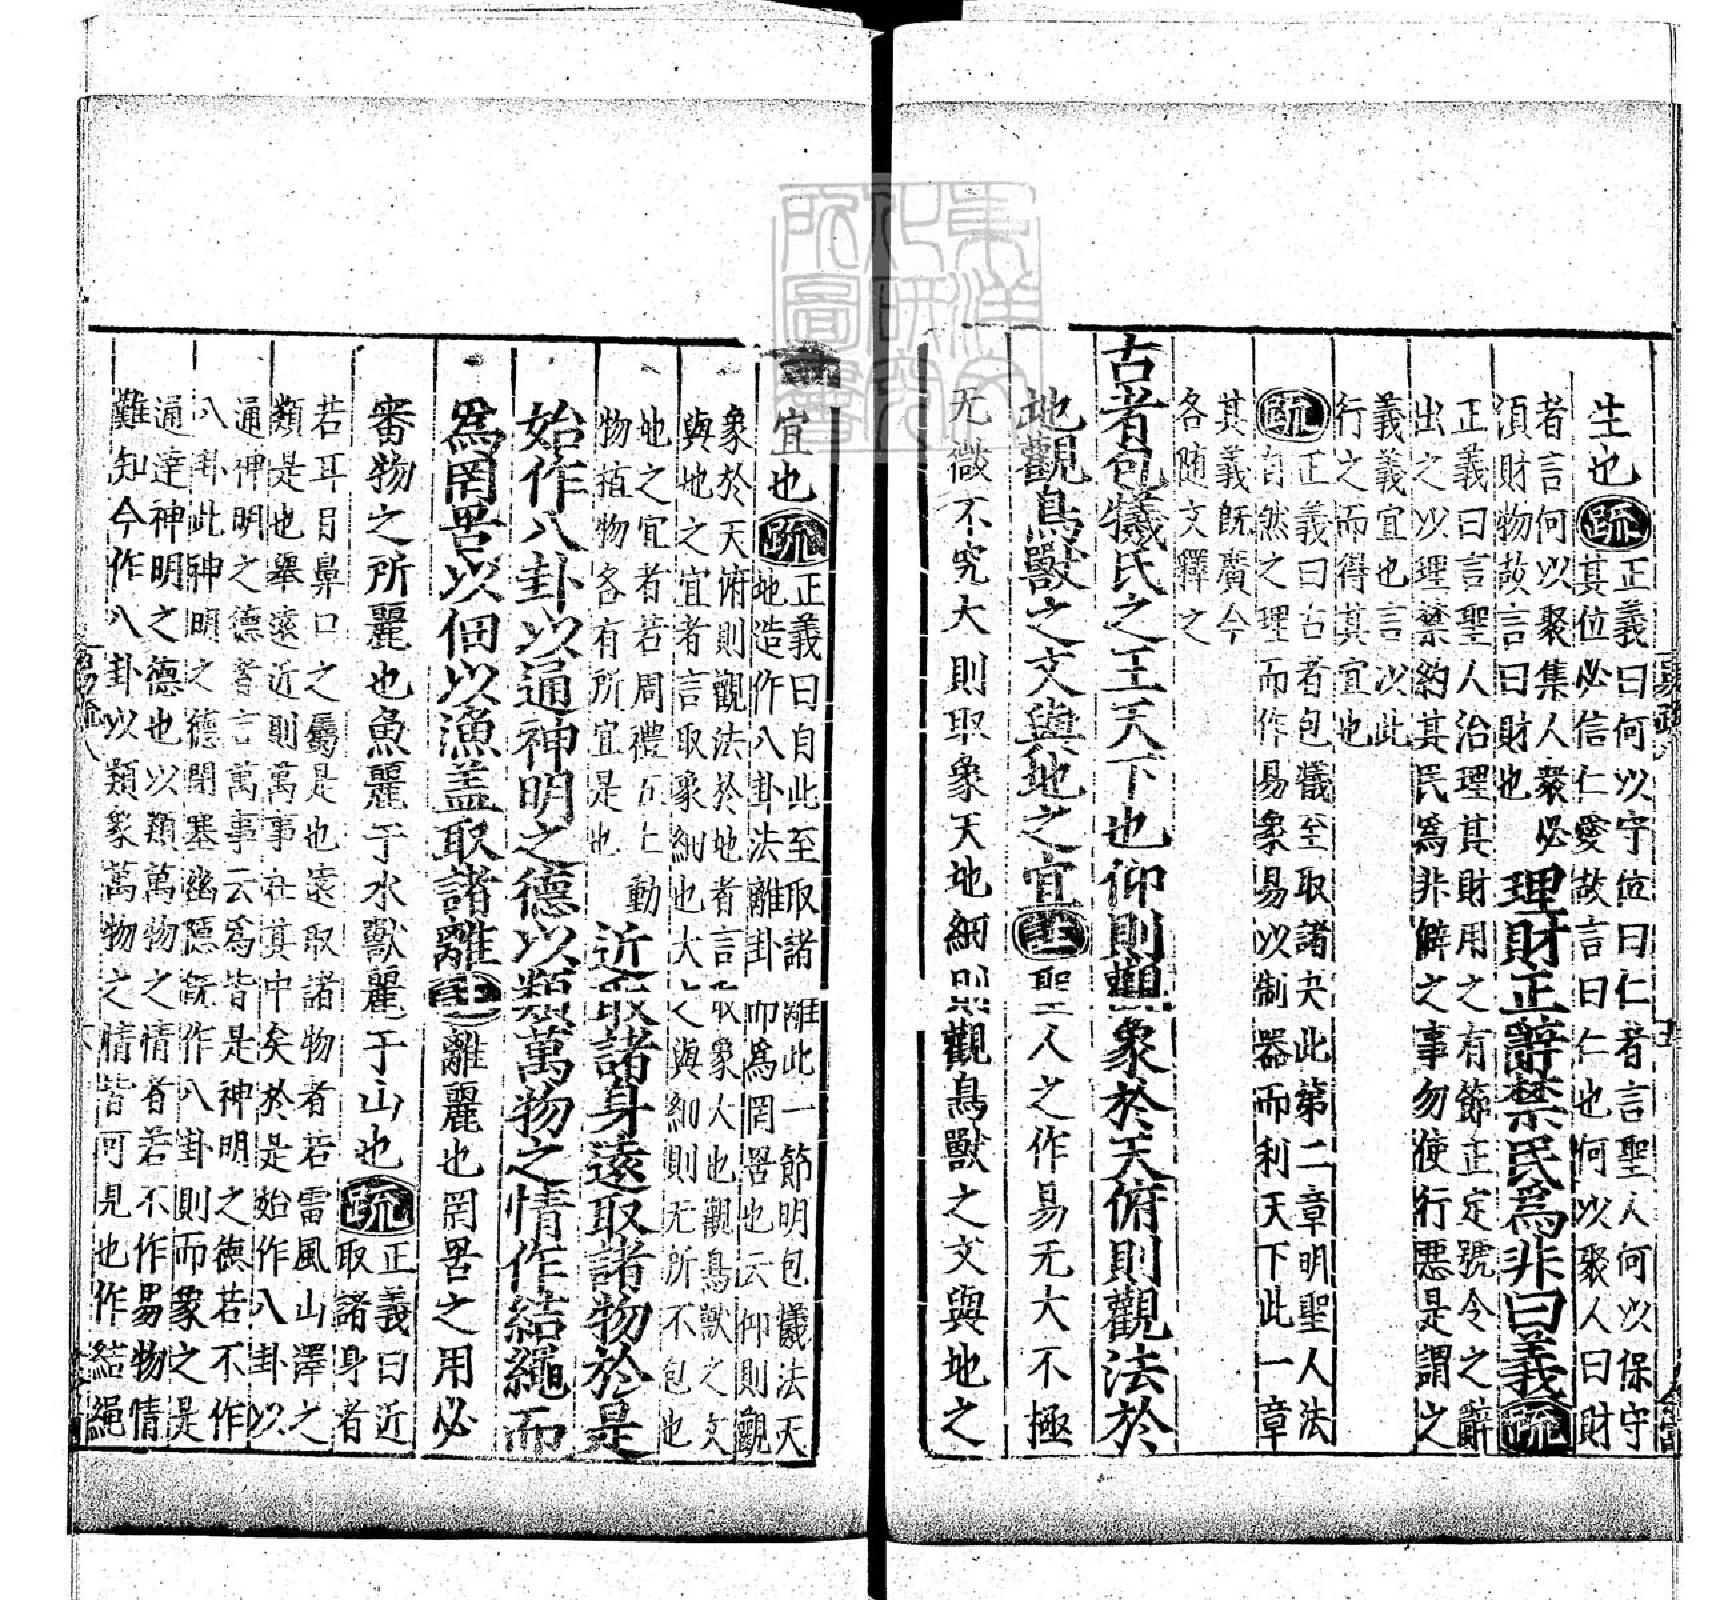 生也疏正義曰何以守位曰仁者言聖人何以保守
其位必信仁愛故言曰仁也何以聚人曰財
者言何以聚集人衆必
湏財物故言曰財也
理財正辭禁民爲非曰義疏
正義曰言聖人治理其財用之有節正定號令之辭
出之以理禁約其民爲非僻之事勿使行惡是謂之
義義宜也言以此
行之而得其宜也
疏正義曰古者包犧至取諸夬此第二章明聖人法
自然之理而作易象易以制器而利天下此一章
其義旣廣今
各随文釋之
古者包犧氏之王天下也仰則觀象於天俯則觀法於
地觀鳥獸之文與地之宜注聖人之作易无大不極
无微不究大則取象天地細則觀鳥獸之文與地之
宜也疏正義曰自此至取諸離此一節明包犧法天
地造作八卦法離卦而爲罔罟也云仰則觀
象於天俯則觀法於地者言取象大也觀鳥獸之文
與地之宜者言取象細也大之與細則无所不包也
地之宜者若周禮五土動
物植物各有所宜是也
近取諸身遠取諸物於是
始作八卦以通神明之德以類萬物之情作結繩而
爲罔罟以佃以漁盖取諸離注離麗也罔罟之用必
審物之所麗也魚麗于水獸麗于山也疏正義曰近
取諸身者
若耳目鼻口之屬是也遠取諸物者若雷風山澤之
類是也舉遠近則萬事在其中矣於是始作八卦以
通神明之德者言萬事云爲皆是神明之德若不作
八卦此神明之德閉塞幽隱旣作八卦則而象之是
通達神明之德也以類萬物之情者若不作易物情
難知今作八卦以類象萬物之情皆可見也作結繩